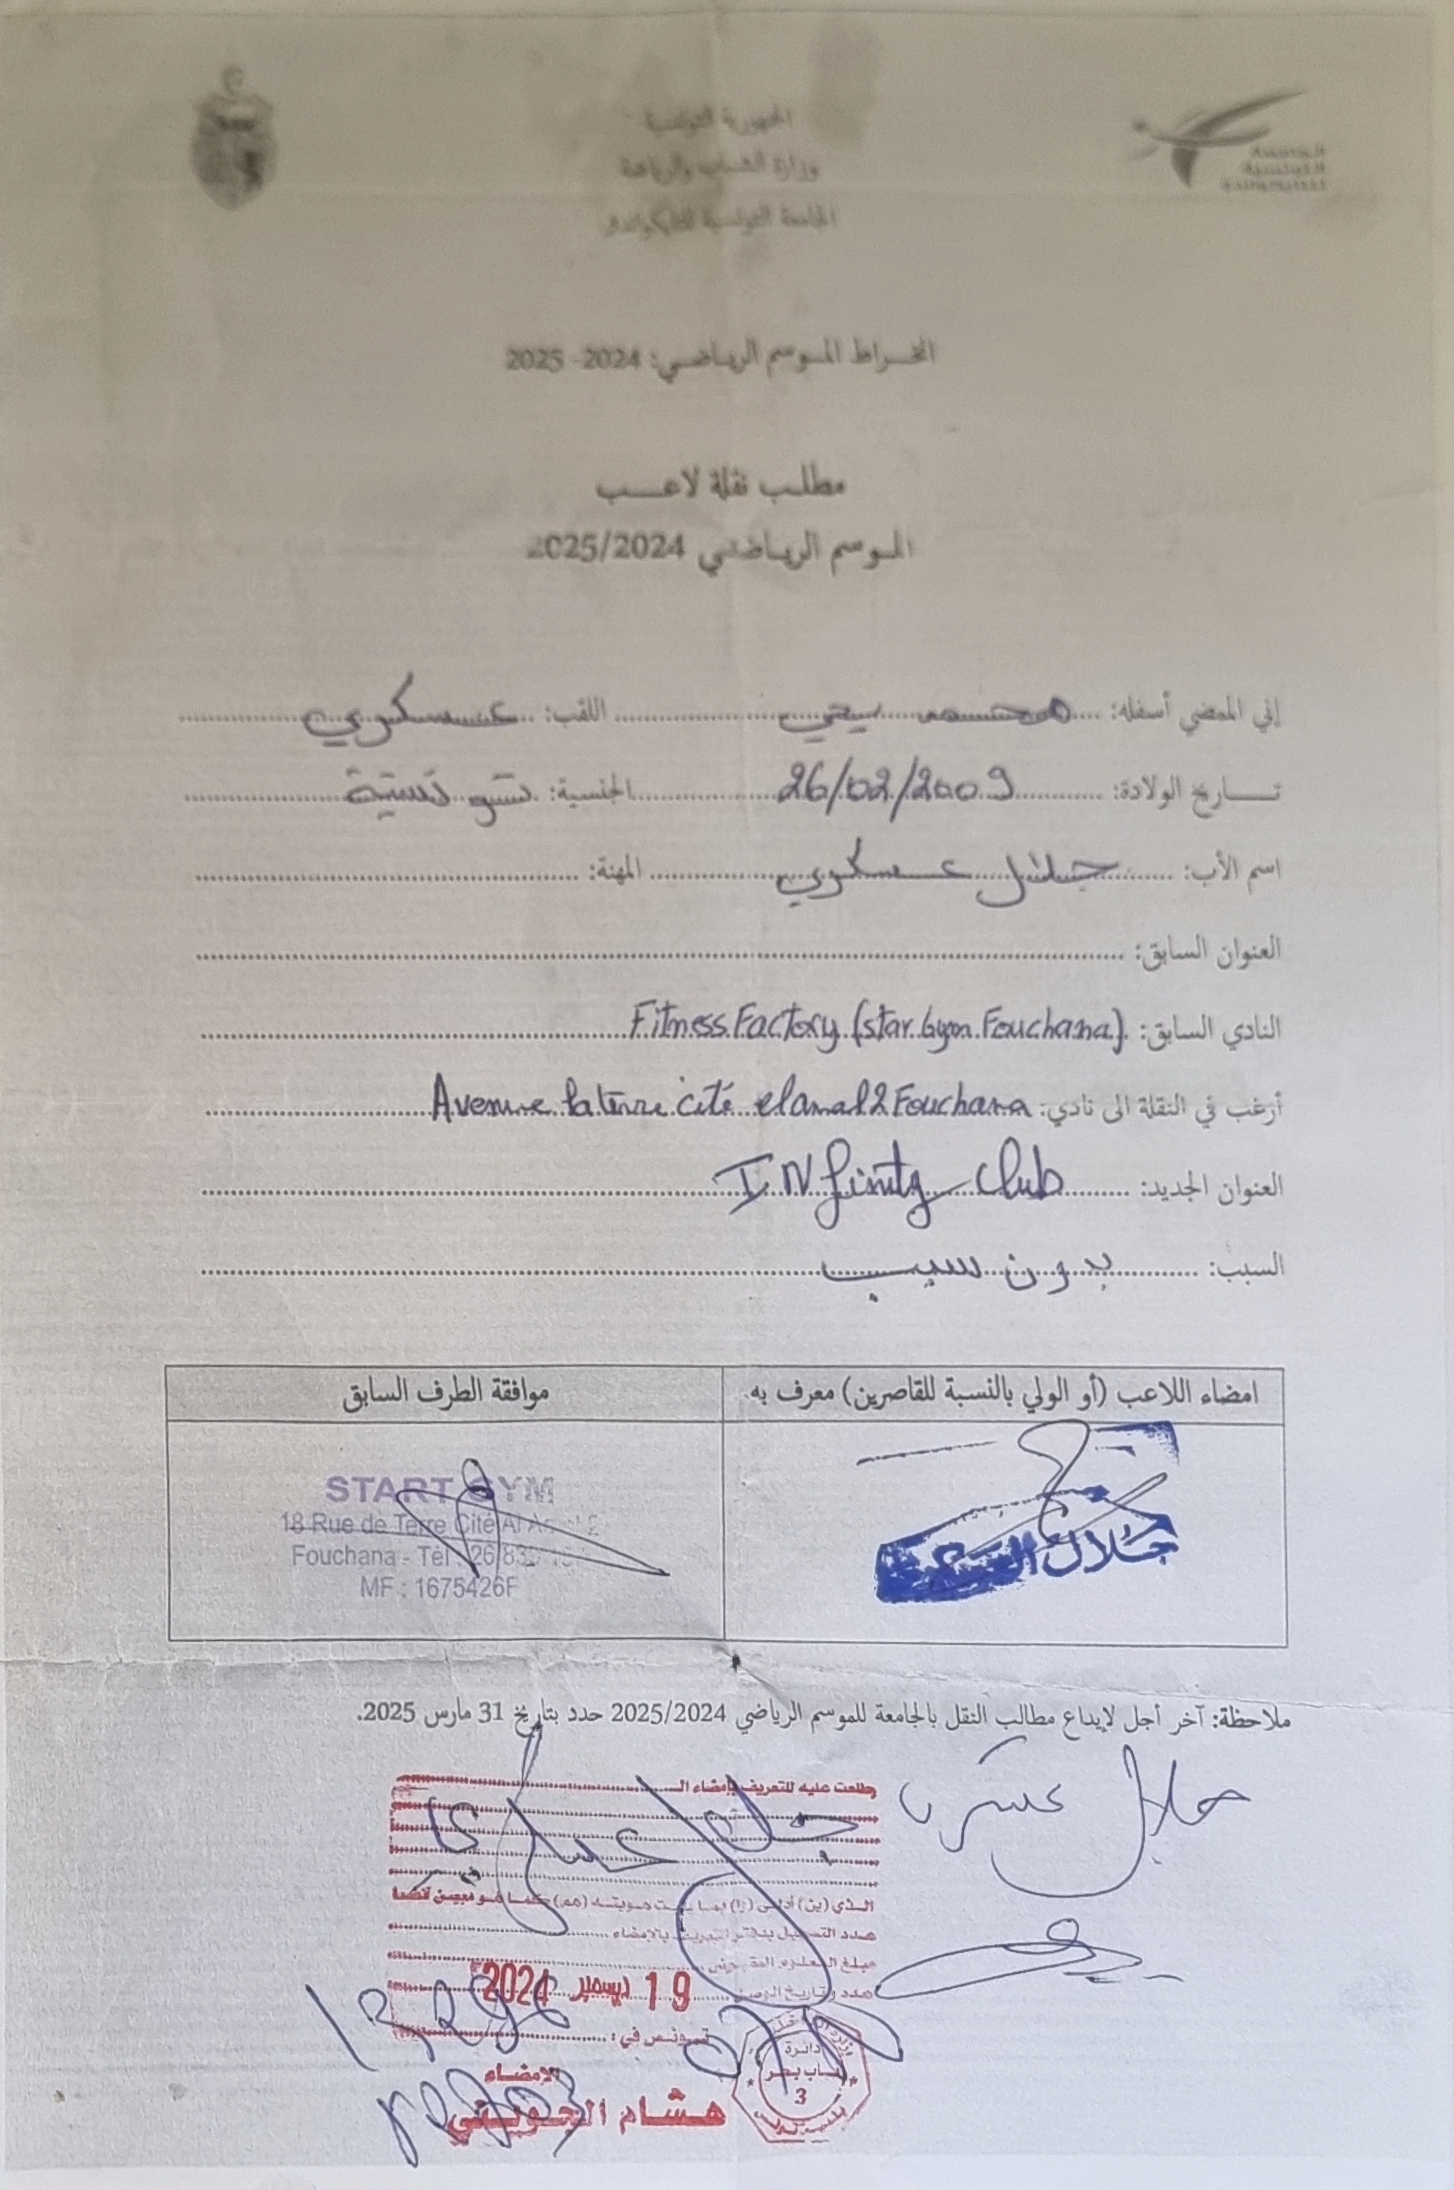 الجمهورية التونسية
وزارة الشباب والرياضة
الجامعة التونسية للتايكواندو
الجامعة
التونسية
للتايكواندو
انخراط الموسم الرياضي: 2024- 2025
مطلب نقلة لاعب
الموسم الرياضي 2025/2024
إني الممضي أسفله: محمد يحي اللقب: عسكري
تاريخ الولادة: 26/02/2009 الجنسية: تونسية
اسم الأب: جلال عسكري المهنة:
العنوان السابق:
النادي السابق: Fitness Factory (star Gym Fouchana)
أرغب في النقلة الى نادي: Avenue la terre cité elamal 2 Fouchana
العنوان الجديد: INfinity Club
السبب: بدون سبب
امضاء اللاعب (أو الولي بالنسبة للقاصرين) معرف به.
موافقة الطرف السابق
START GYM
18 Rue de Terre Cité Al 2
Fouchana - Tél : 26 83
MF : 1675426F
جلال
ملاحظة: آخر أجل لإيداع مطالب النقل بالجامعة للموسم الرياضي 2025/2024 حدد بتاريخ 31 مارس 2025.
جلال عسكري
اطلعت عليه للتعريف بإمضاء الـ
جلال عسكري
عدد التسجيل بدفتر التعريف بالإمضاء
عدد وتاريخ الوصل
19 ديسمبر 2024
تونس في :
الإمضاء
هشام
دائرة
باب بحر
3